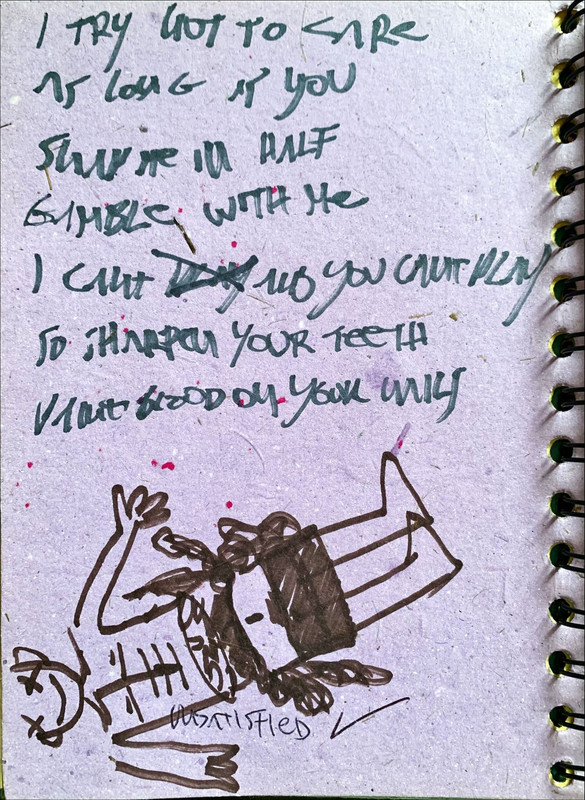 I TRY NOT TO CARE
AS LONG AS YOU
SNAP ME IN HALF
GAMBLE WITH ME
I CANT AND YOU CANT PLAY
SO SHARPEN YOUR TEETH
I VANT BLOOD ON YOUR
UNSATISFIED